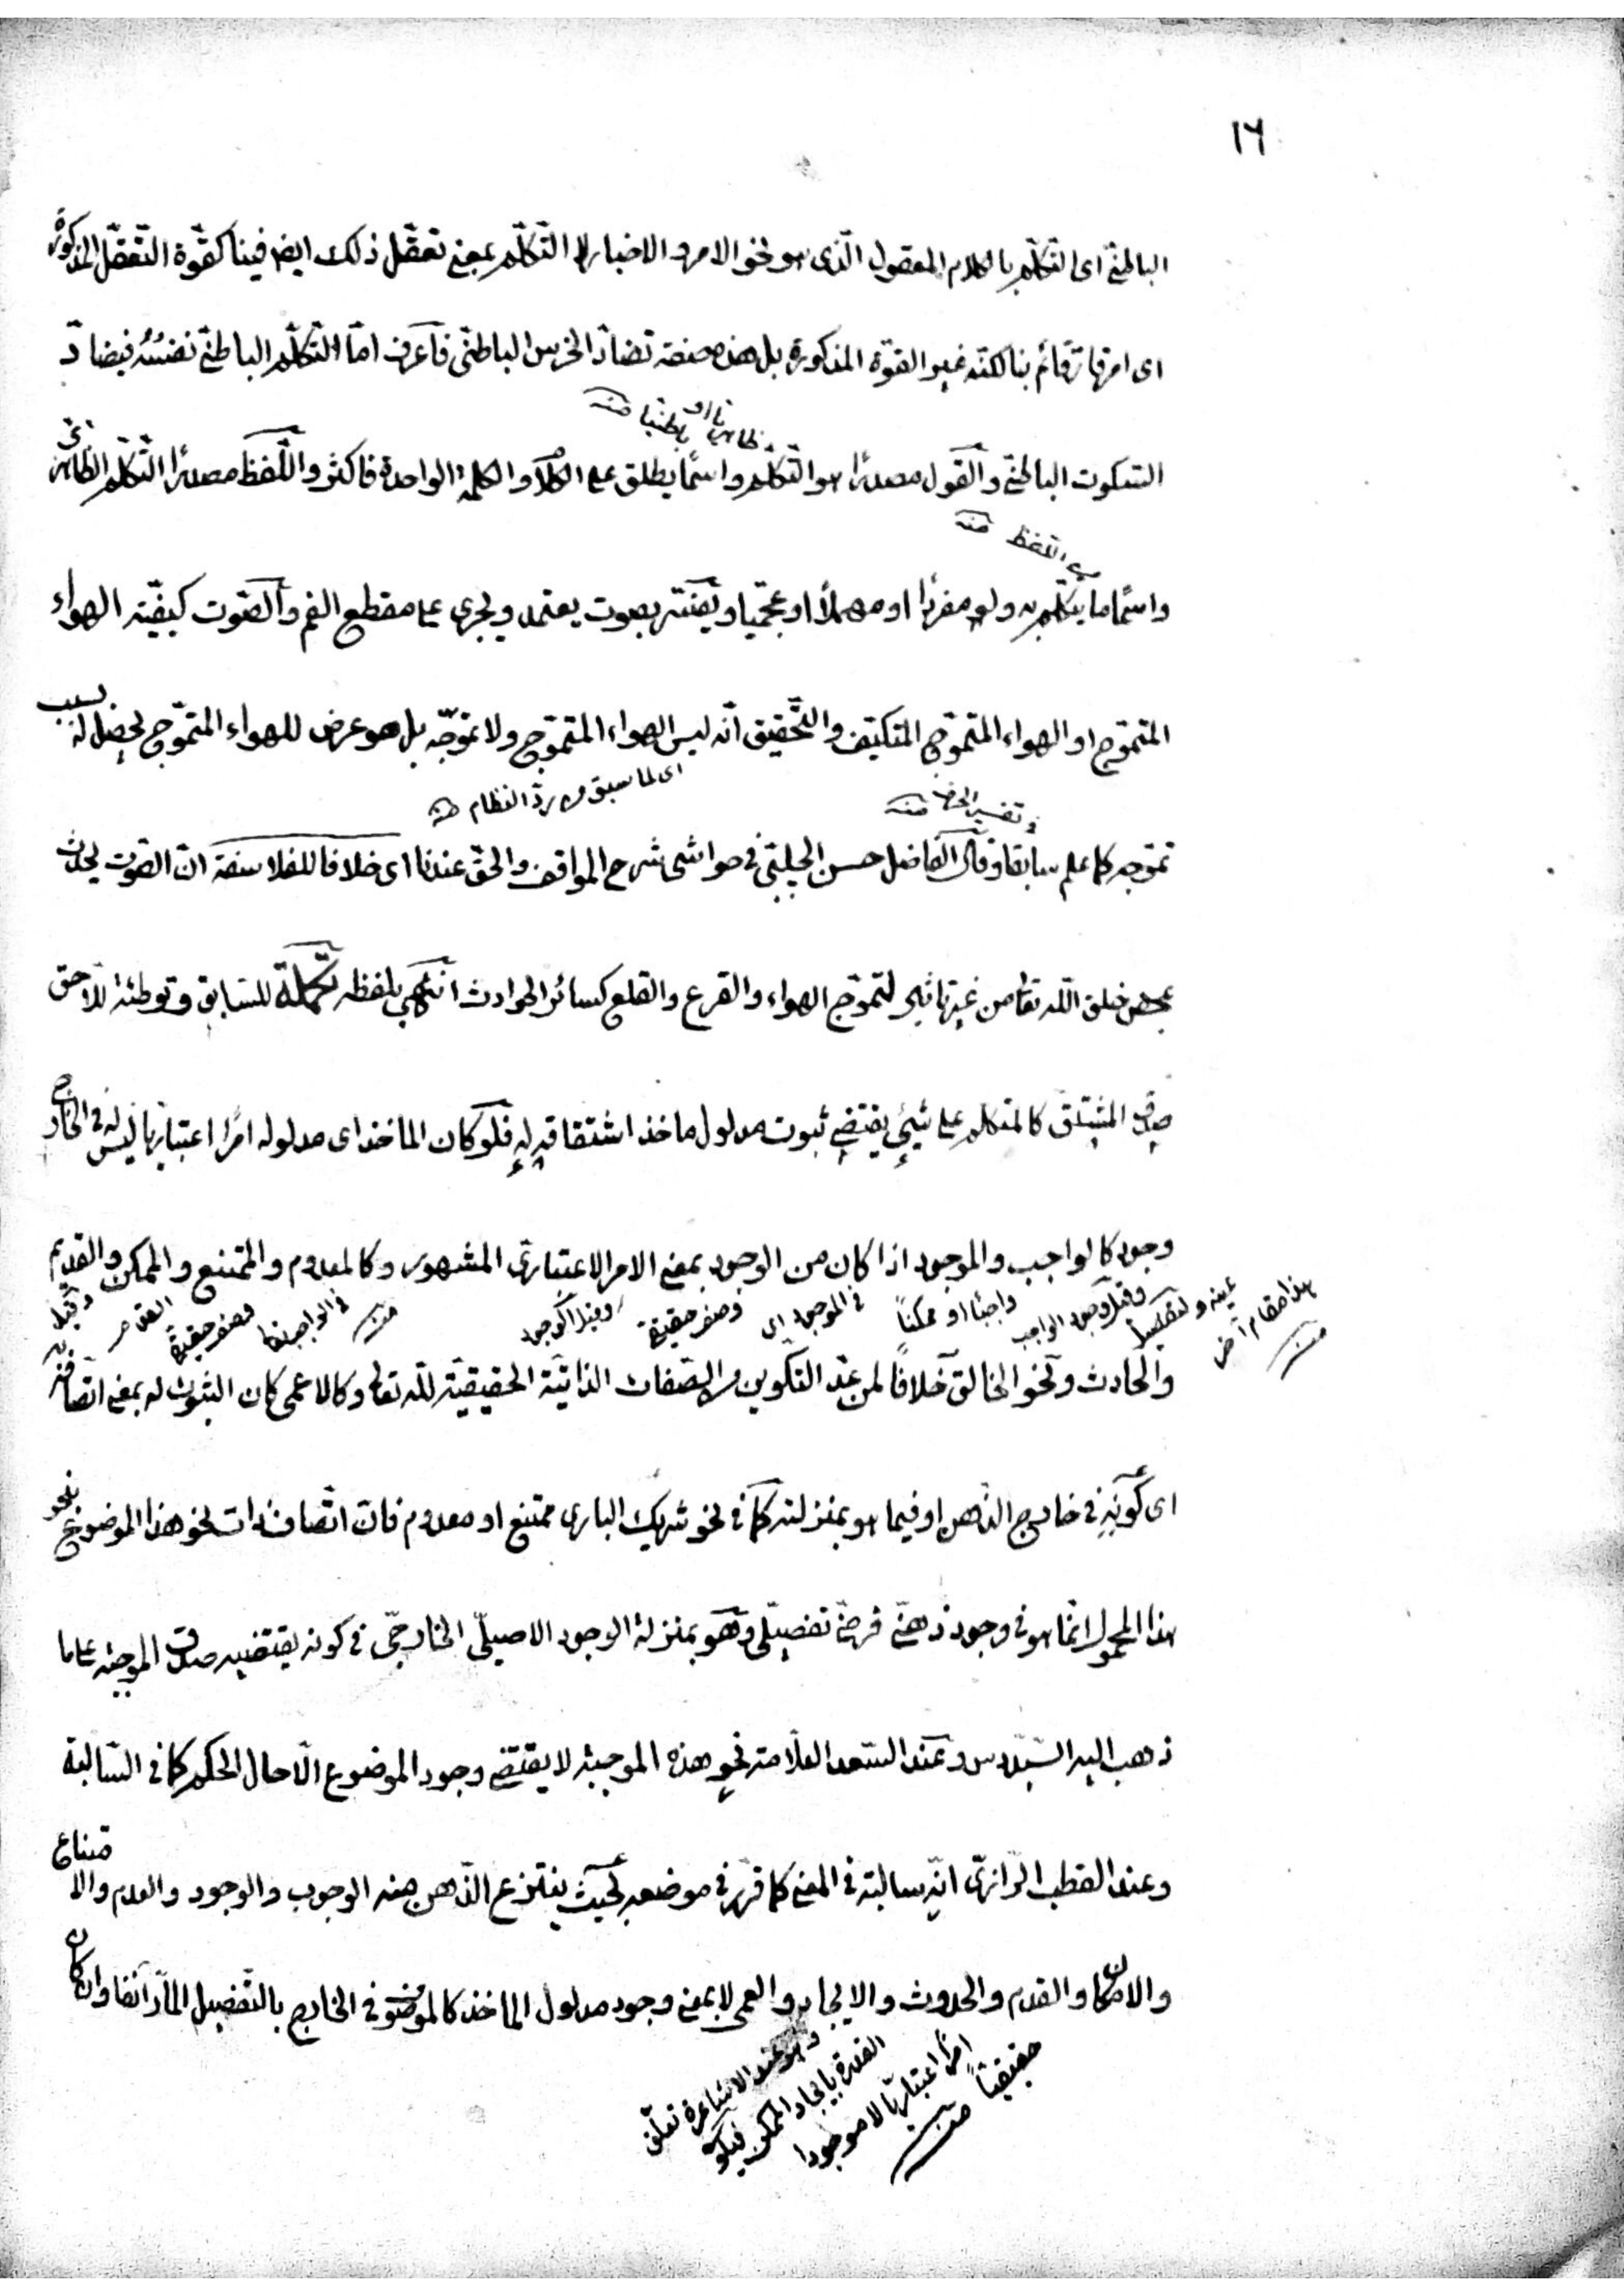 ١٦
الباطني اى التكلّم بالكلام المعقول الّذى هو نحو الامر والاخبار لا التّكلّم بمعنى تعقّل ذلك ايضا فينا كقوّة التّعقّل المذكورة
اى امر قارّ قائم بنا لكنّه غير القوّة المذكورة بل هذه صفة تضادّ الخرس الباطنىّ فاعرف امّا التّكلّم الباطنىّ نفسُه فيضادّ
السّكوت الباطنىّ والقول مصدرًا هو التّكلّم واسمًا يطلق على الكلام والكلمة الواحدة فاكثر واللّفظ مصدرًا التّكلّم الظاهرىّ
ظاهريا او باطنيا منه
اى اللفظ منه
واسمًا ما يتكلّم به ولو مفردًا او مهملًا او عجميا ويفسّر بصوت يعتمد ويجرى على مقطع الفم والصّوت كيفيّة الهواء
المتموّج او الهواء المتموّج المتكيّف والتّحقيق انّه ليس الهواء المتموّج ولا تموّجه بل هو عرض للهواء المتموّج يحصل له بسبب
اى لما سبق من ردّ النظام منه
وتفسير الحق منه
تموّجه كما علم سابقا وقال الفاضل حسن الچلبىّ فى حواشى شرح المواقف والحقّ عندنا اى خلافا للفلاسفة انّ الصّوت يحدث
بمحض خلق اللّه تعالى من غير تأثير لتموّج الهواء والقرع والقلع كسائر الحوادث انتهى بلفظه تكملة للسّابق وتوطئة للّاحق
صدق المشتقّ كالمتكلّم على شيئ يقتضى ثبوت مدلول مأخذ اشتقاقه له فلو كان المأخذ اى مدلوله امرًا اعتباريّا ليس له فى الخارج
وجود كالواجب والموجود اذا كان من الوجود بمعنى الامر الاعتبارىّ المشهور وكالمعدوم والممتنع والممكن والقديم
هذا مقام آخر منه
عينه وتفصيل
وقيل وجود الواجب
واجبًا او ممكنًا
فى الموجود اى
وصف حقيقة
وقيل الوجود
منه
فى الواجب
وصف حقيقة
القدم
وقيل
والحادث ونحو الخالق خلافًا لمن عدّ التّكوين من الصّفات الذّاتيّة الحقيقيّة للّه تعالى وكالاعمى كان الثّبوت له بمعنى اتّصافه به
اى كونه فى خارج الذّهن او فيما هو بمنزلته كما فى نحو شريك البارى ممتنع او معدوم فانّ اتّصاف ذات نحو هذا الموضوع بنحو
هذا المحمول انّما هو فى وجود ذهنىّ فرضىّ تفصيلىّ وهو بمنزلة الوجود الاصيلىّ الخارجىّ فى كونه يقتضيه صدق الموجبة على ما
ذهب اليه السّيّد س وعند السّعد العلّامة نحو هذه الموجبة لا يقتضى وجود الموضوع الّا حال الحكم كما فى السّالبة
وعند القطب الرّازىّ انّه سالبة فى المعنى كما قرّر فى موضعه بحيث ينتزع الذّهن منه الوجوب والوجود والعدم والامتناع
والامكان والقدم والحدوث والايجاد والعمى لا بمعنى وجود مدلول المأخذ كالموضوع فى الخارج بالتّفصيل المارّ آنفا وان كان
وهو عند الاشاعرة تعلّق
القدرة بايجاد الممكن فيكون
امرًا اعتباريّا لا موجودا
حقيقيًا منه